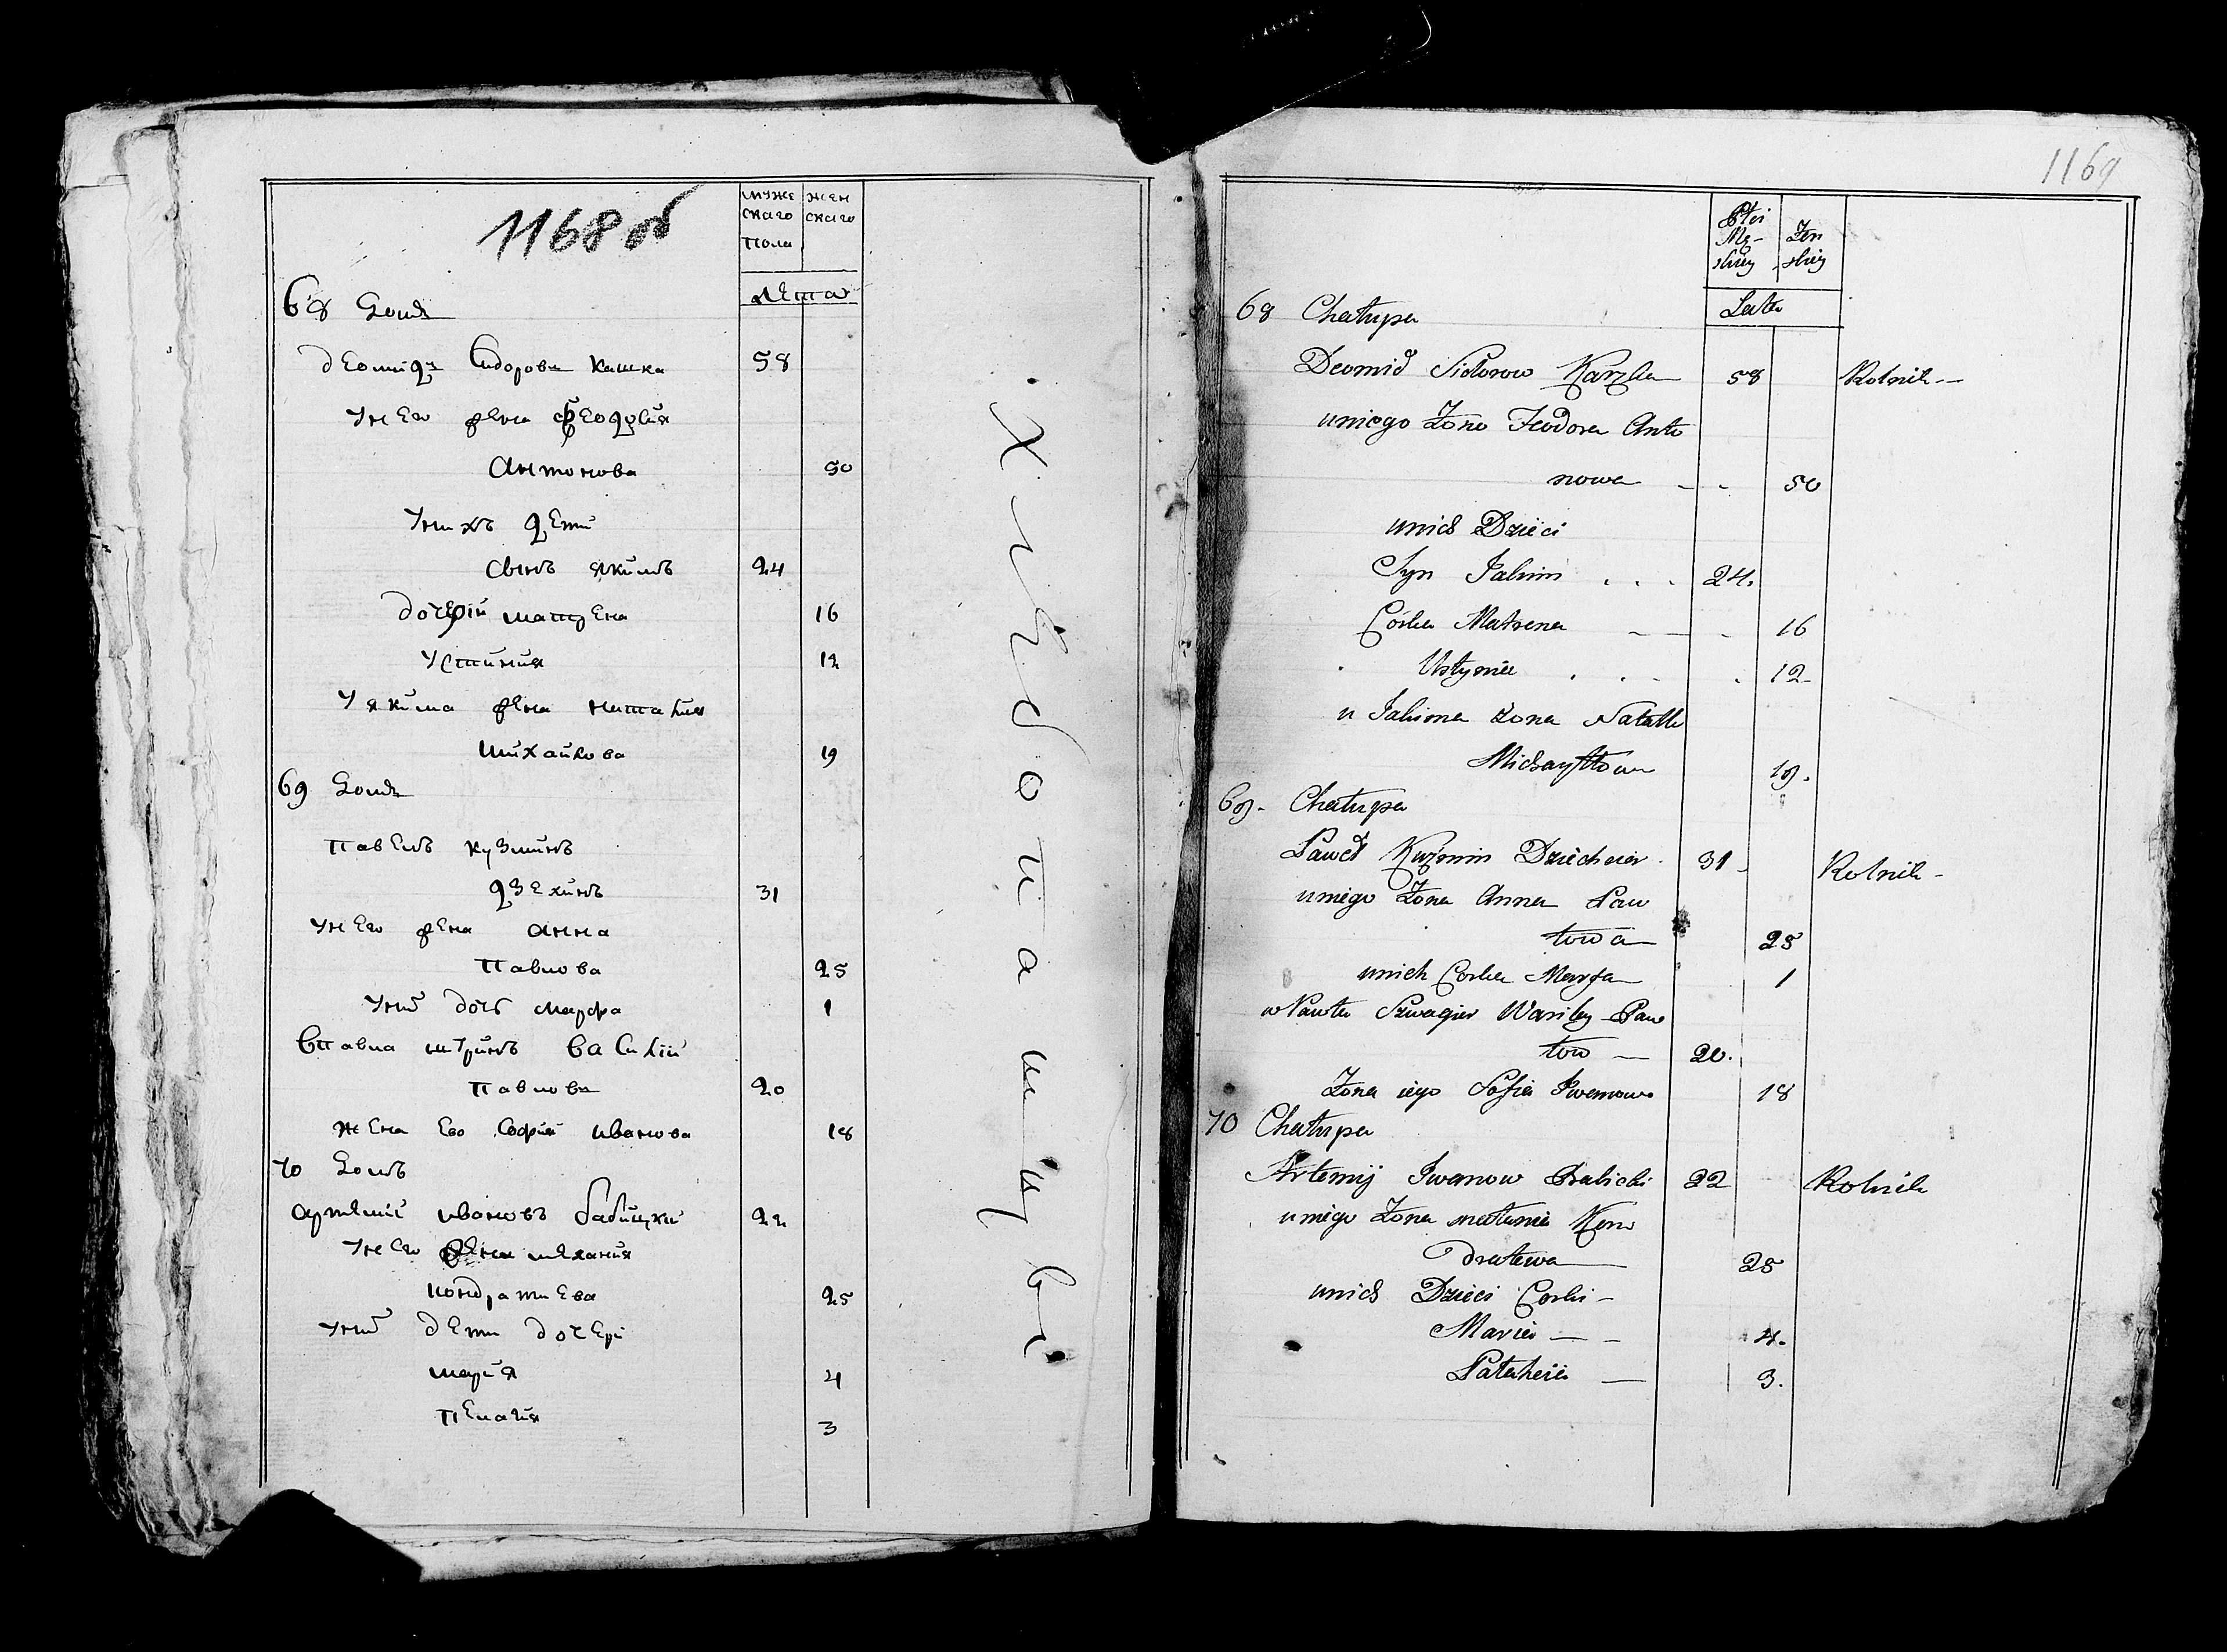 1168 об
муже
скаго
пола
жен
скаго
Лета
68 Домъ
Деомидъ Сидоровъ Кашка 58
у него жена Феодосия
Антонова 50
у нихъ дети
сынъ Якимъ 24
дочери Матрена 16
Устиния 12
у Якима жена Наталия
Михайлова 19
69 Домъ
Павелъ Кузминъ
Дзехинъ 31
у него жена Анна
Павлова 25
у них дочь Марфа 1
в Павла шуринъ Василий
Павловъ 20
жена ево София Иванова 18
70 Домъ
Артемий Ивановъ Бабицкий 22
у него жена Мелания
Кондратиева 25
у них дети дочери
Мария 4
Пелагия 3
хлебопашцы
1169
Płci
Mę-
skiey
Żeń
skiey
Lata
68 Chałupa
Deomid Sidorow Karzka 58 Rolnik
u niego Żona Feodora Anto
nowa 50
u nich Dzieci
Syn Jakim 24.
Córka Matrena 16
Ustynia 12
u Jakima żona Natalla
Michayłłowa 19.
69. Chałupa
Paweł Kuźmin Dziechcier 31 Rolnik
u niego Żona Anna Paw
łowa 25
u nich Corka Marfa 1
w Pawła Szwagier Wasiley Paw
łow 20.
Żona iego Sofia Iwanowa 18
70 Chałupa
Artemij Iwanow Babicki 22 Rolnik
u niego Żona Małania Kon
dratewa 25
u nich Dzieci Corki
Maria 4.
Pałaheia 3.